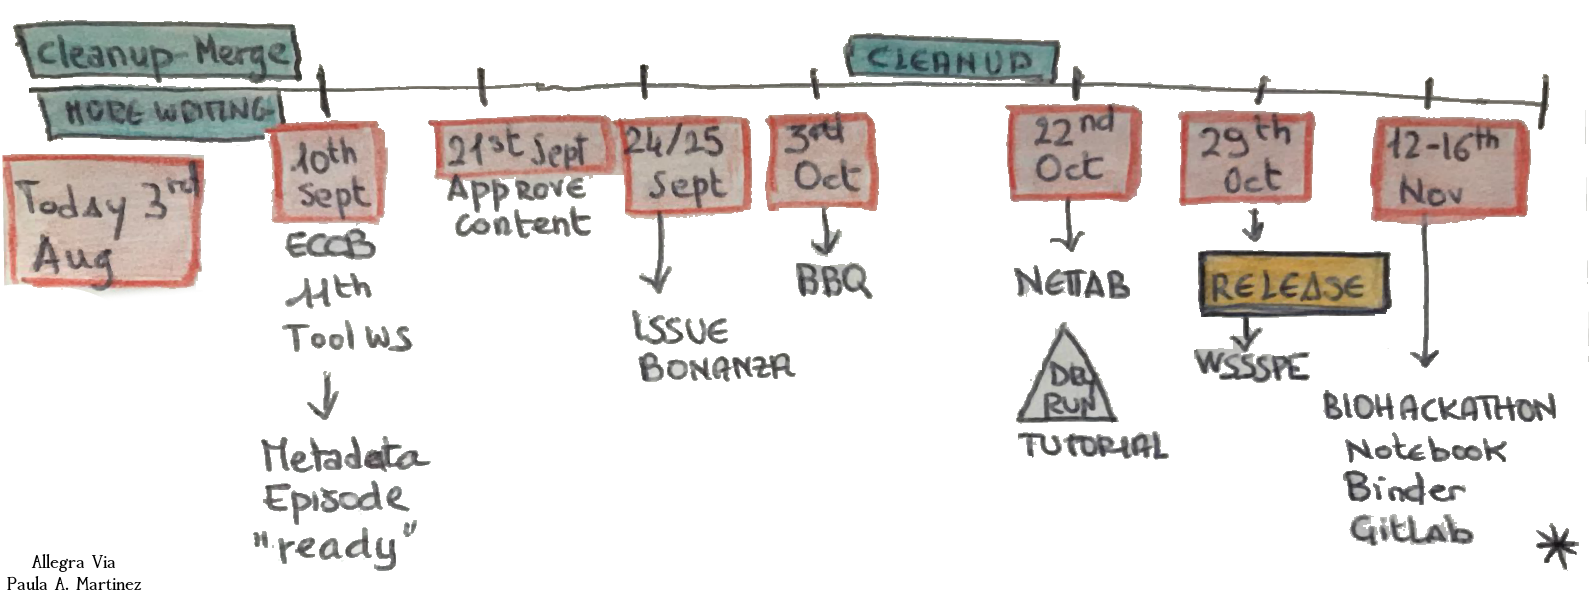 Cleanup-Merge
MORE WRITING
Today 3rd
Aug
10th
Sept
ECCB
11th
Tool WS
Metadata
Episode
"ready"
21st Sept
Approve
content
24/25
Sept
ISSUE
BONANZA
3rd
Oct
BBQ
CLEANUP
22nd
Oct
NETTAB
DRY
RUN
TUTORIAL
29th
Oct
RELEASE
WSSSPE
12-16th
Nov
BIOHACKATHON
Notebook
Binder
GitLab
Allegra Via
Paula A. Martinez